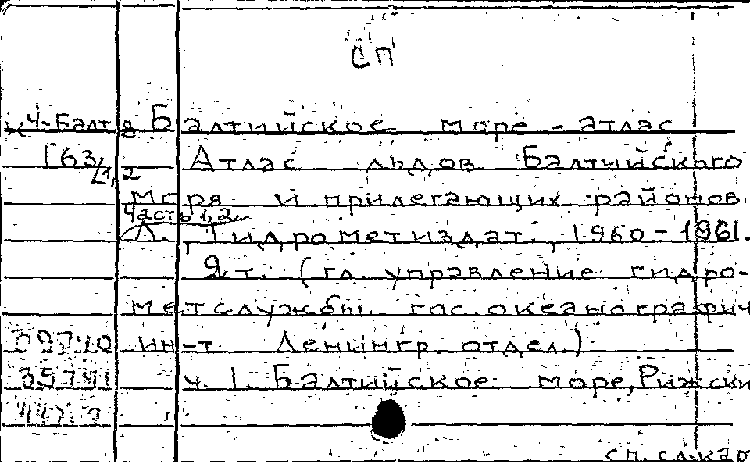 СП
Ч-Балт Балтийское море - атлас
[63/1,2 Атлас льдов Балтийского
моря и прилегающих районов
Часть 1,2
Л., Гидрометиздат., 1960-1961.
2 т. (гл. управление гидро-
метслужбы гос. океанографич
ин-т Ленингр. отдел.)
35741 ч. 1. Балтийское море, Рижски
сл. след. кар